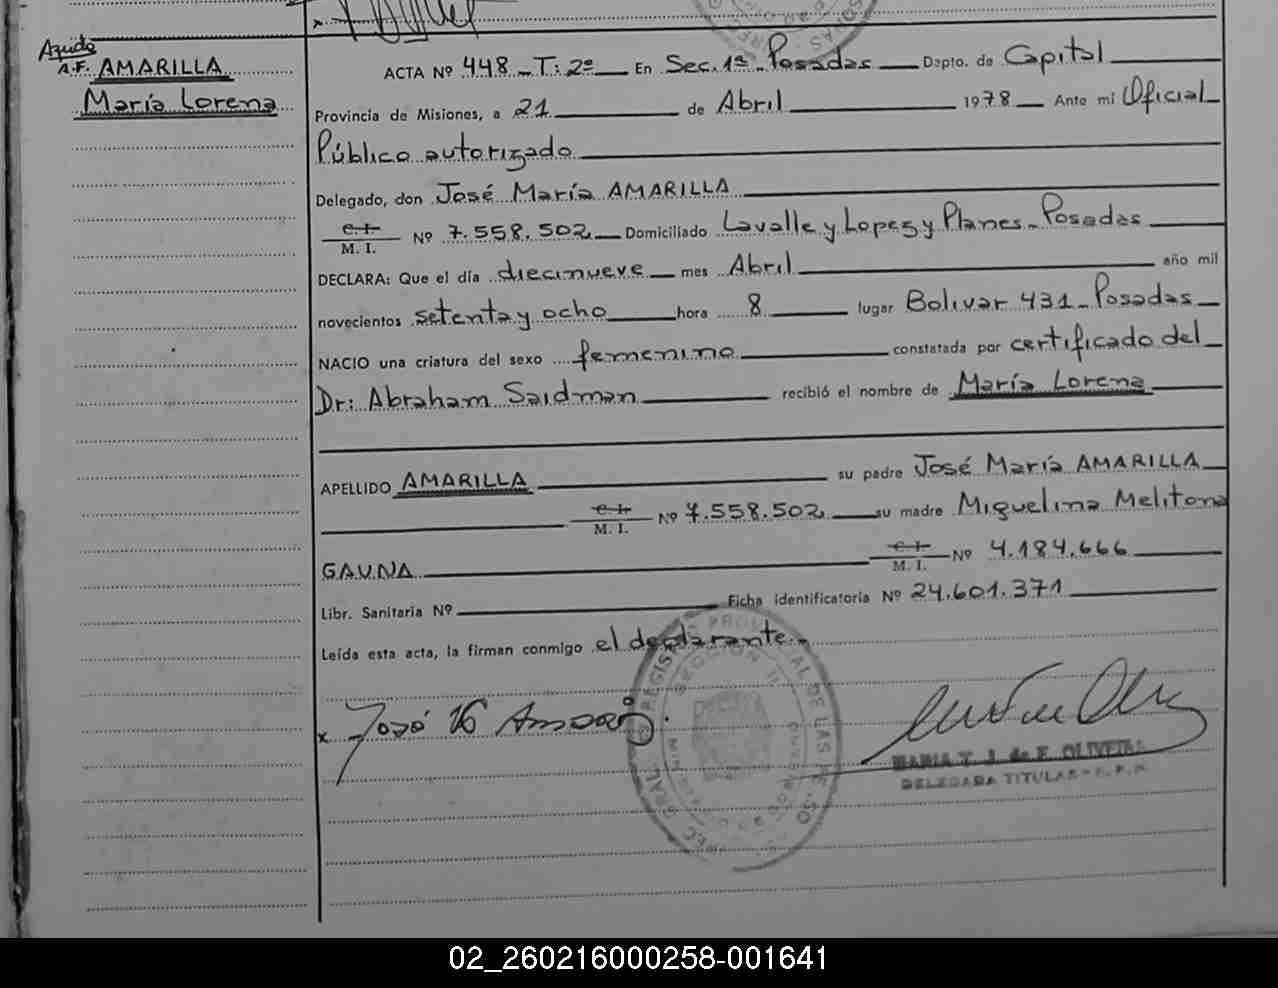 Ayuda
A.F. AMARILLA
María Lorena
ACTA Nº 448 - T: 2º En Sec. 1ª - Posadas Dpto. de Capital
Provincia de Misiones, a 21 de Abril 1978 Ante mi Oficial
Público autorizado
Delegado, don José María AMARILLA
C.I. M. I. Nº 7.558.502 Domiciliado Lavalle y Lopez y Planes - Posadas
DECLARA: Que el día diecinueve mes Abril año mil
novecientos setenta y ocho hora 8 lugar Bolivar 431 - Posadas
NACIO una criatura del sexo femenino constatada por certificado del
Dr: Abraham Saidman recibió el nombre de María Lorena
APELLIDO AMARILLA su padre José María AMARILLA
C.I. M. I. Nº 7.558.502 su madre Miguelina Melitona
GAUNA C.I. M. I. Nº 4.184.666
Libr. Sanitaria Nº Ficha identificatoria Nº 24.601.371
Leída esta acta, la firman conmigo el declarante.-
x José
MARIA T. J. de F. OLIVEIRA
DELEGADA TITULAR - R. P. P.
02_260216000258-001641